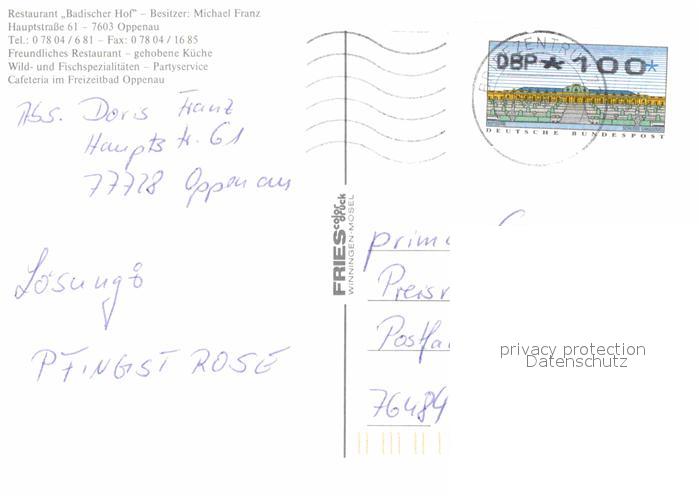 Restaurant „Badischer Hof" – Besitzer: Michael Franz
Hauptstraße 61 – 7603 Oppenau
Tel.: 0 78 04 / 6 81 – Fax: 0 78 04 / 16 85
Freundliches Restaurant – gehobene Küche
Wild- und Fischspezialitäten – Partyservice
Cafeteria im Freizeitbad Oppenau
Abs. Doris Franz
Hauptstr. 61
77728 Oppenau
Lösung:
PFINGST ROSE
FRIES color druck
WINNINGEN-MOSEL
BRIEFZENTRUM
DBP * 100 *
DEUTSCHE BUNDESPOST
prim
Preisr
Postfa
76484
privacy protection
Datenschutz